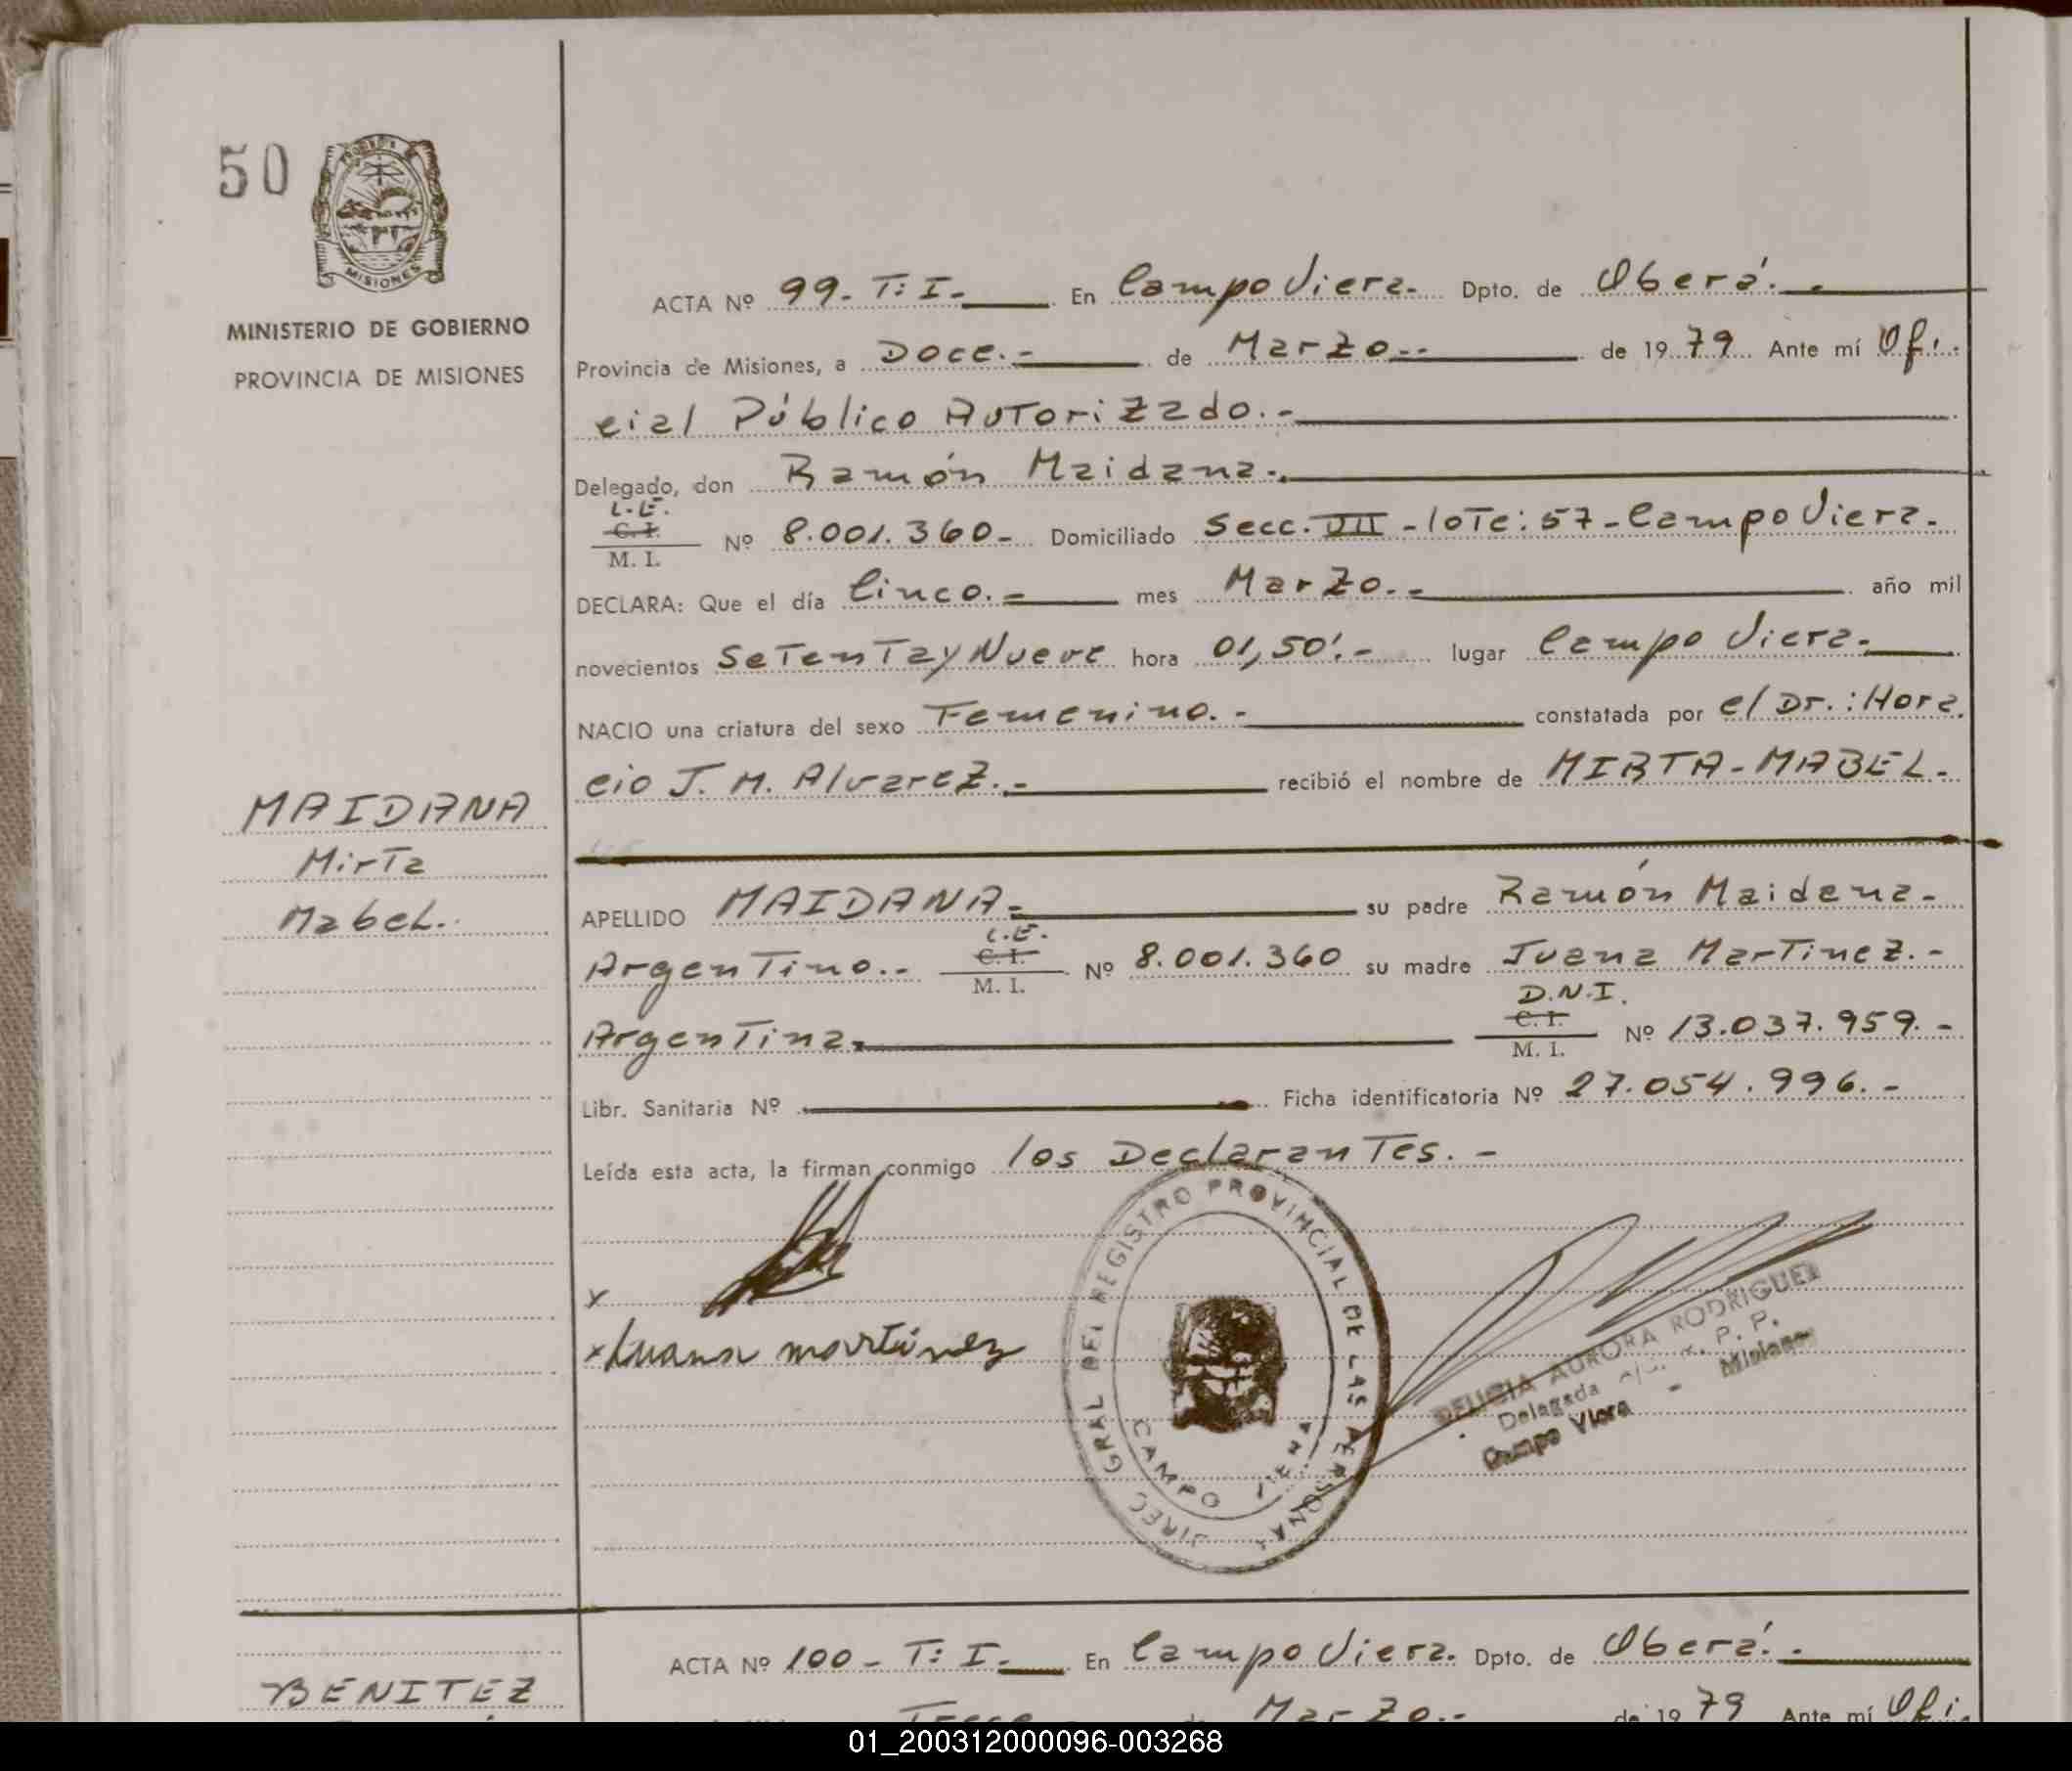 50
MISIONES
MINISTERIO DE GOBIERNO
PROVINCIA DE MISIONES
ACTA Nº 99.- T: I.- En Campo Viera.- Dpto. de Oberá.-
Provincia de Misiones, a Doce.- de Marzo.- de 1979 Ante mí Ofi.
cial Público Autorizado.-
Delegado, don Ramón Maidana.-
L.E.
C. I.
M. I.
Nº 8.001.360- Domiciliado Secc. VII - lote: 57 - Campo Viera.-
DECLARA: Que el día Cinco.- mes Marzo.- año mil
novecientos Setenta y Nueve hora 01,50'.- lugar Campo Viera.-
NACIO una criatura del sexo Femenino.- constatada por el Dr.: Hora
cio J. M. Alvarez.- recibió el nombre de MIRTA-MABEL.-
MAIDANA
Mirta
Mabel.
APELLIDO MAIDANA.- su padre Ramón Maidana.-
Argentino.- L.E. C. I. M. I. Nº 8.001.360 su madre Juana Martinez.-
D.N.I.
Argentina.- C. I. M. I. Nº 13.037.959.-
Libr. Sanitaria Nº Ficha identificatoria Nº 27.054.996.-
Leída esta acta, la firman conmigo los Declarantes.-
x
x Juana martínez
DIREC. GRAL DEL REGISTRO PROVINCIAL DE LAS PERSONAS
CAMPO VIERA
DELICIA AURORA RODRIGUEZ
Delegada R. P. P.
Campo Viera - Misiones
ACTA Nº 100- T: I.- En Campo Viera. Dpto. de Oberá.-
BENITEZ
Trece Marzo.- de 1979 Ante mí Ofi.
01_200312000096-003268